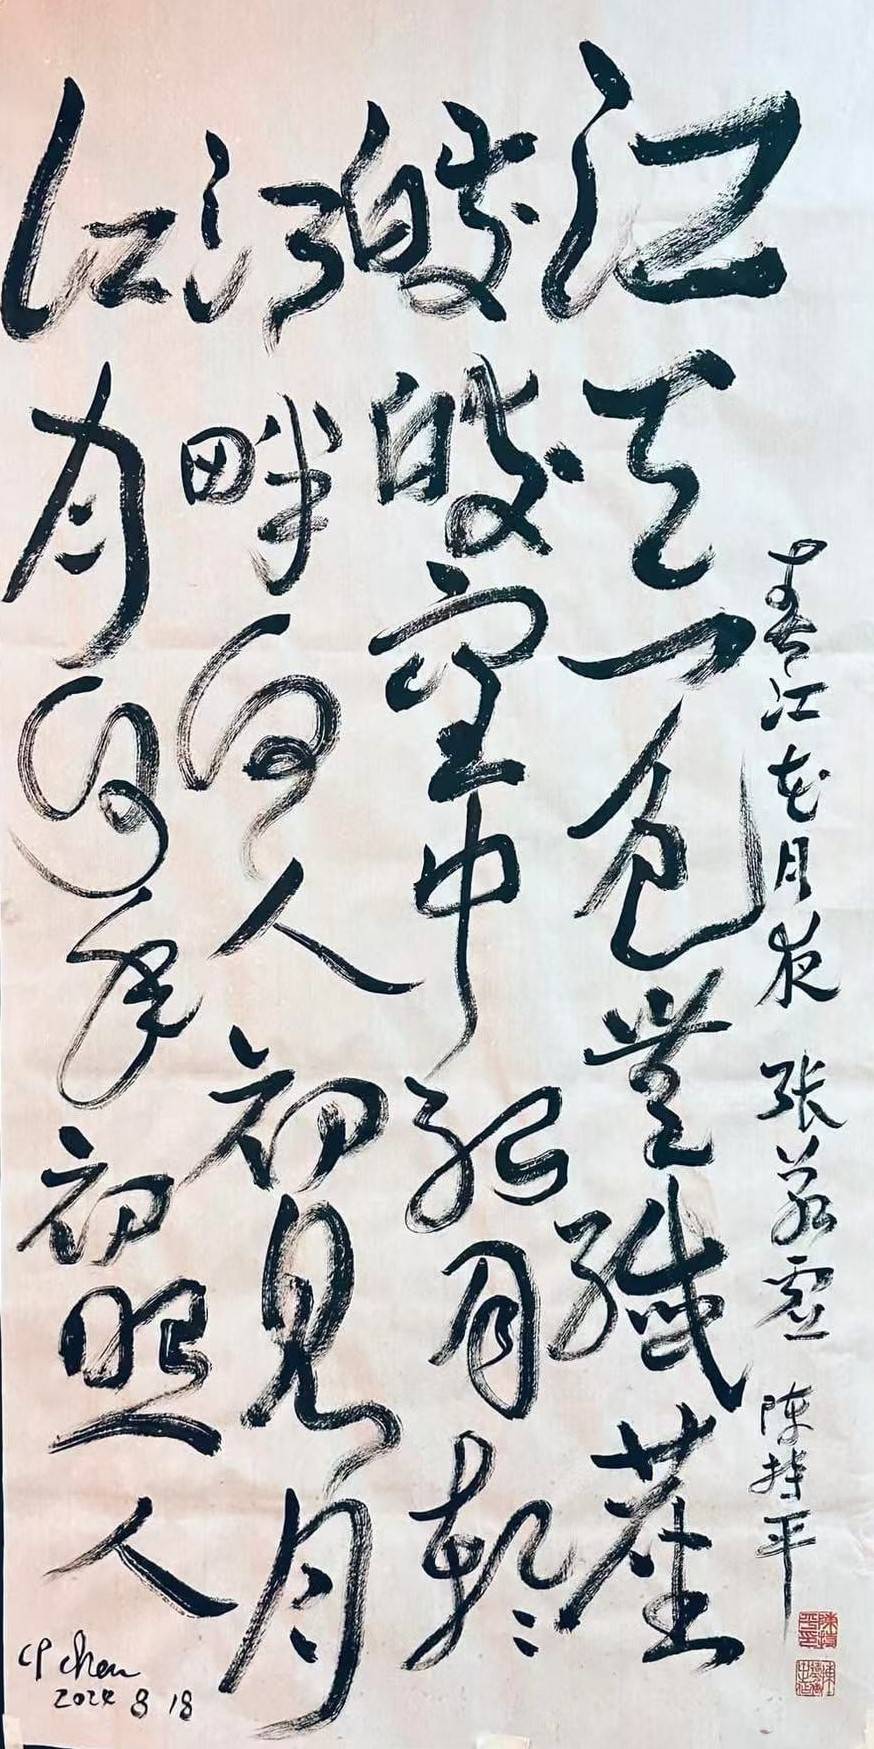 春江花月夜 張若虛 陳持平
江天一色無纖塵
皎皎空中孤月輪
江畔何人初見月
江月何年初照人
CP Chen
2024 8 18